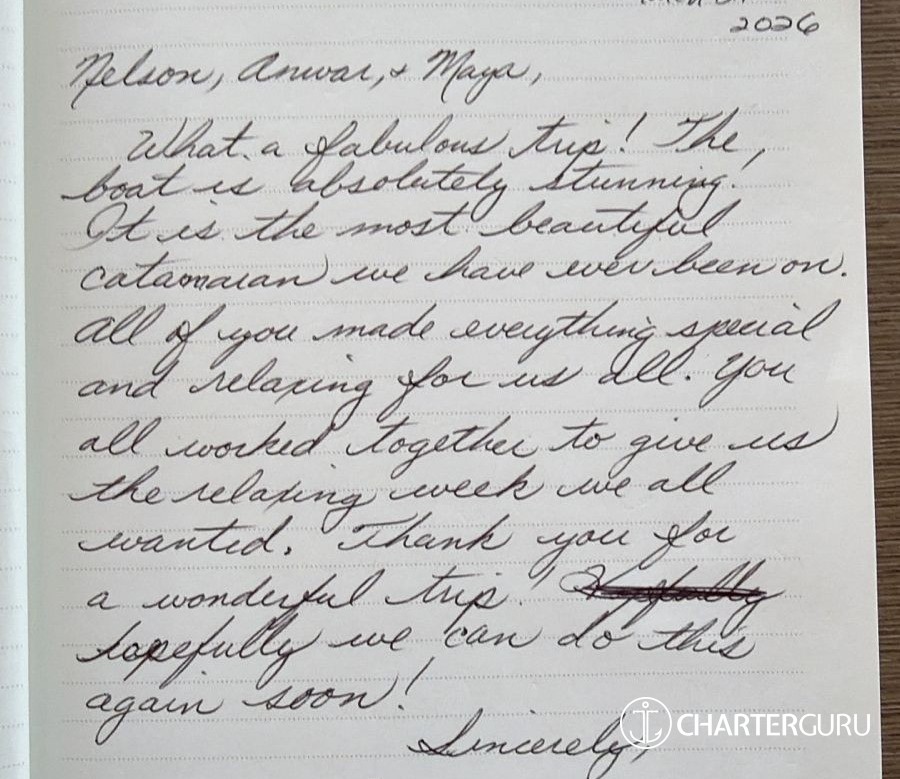 2026
Nelson, Anwar, & Maya,
What a fabulous trip! The
boat is absolutely stunning!
It is the most beautiful
catamaran we have ever been on.
All of you made everything special
and relaxing for us all. You
all worked together to give us
the relaxing week we all
wanted. Thank you for
a wonderful trip! Hopefully
hopefully we can do this
again soon!
Sincerely,
CHARTERGURU